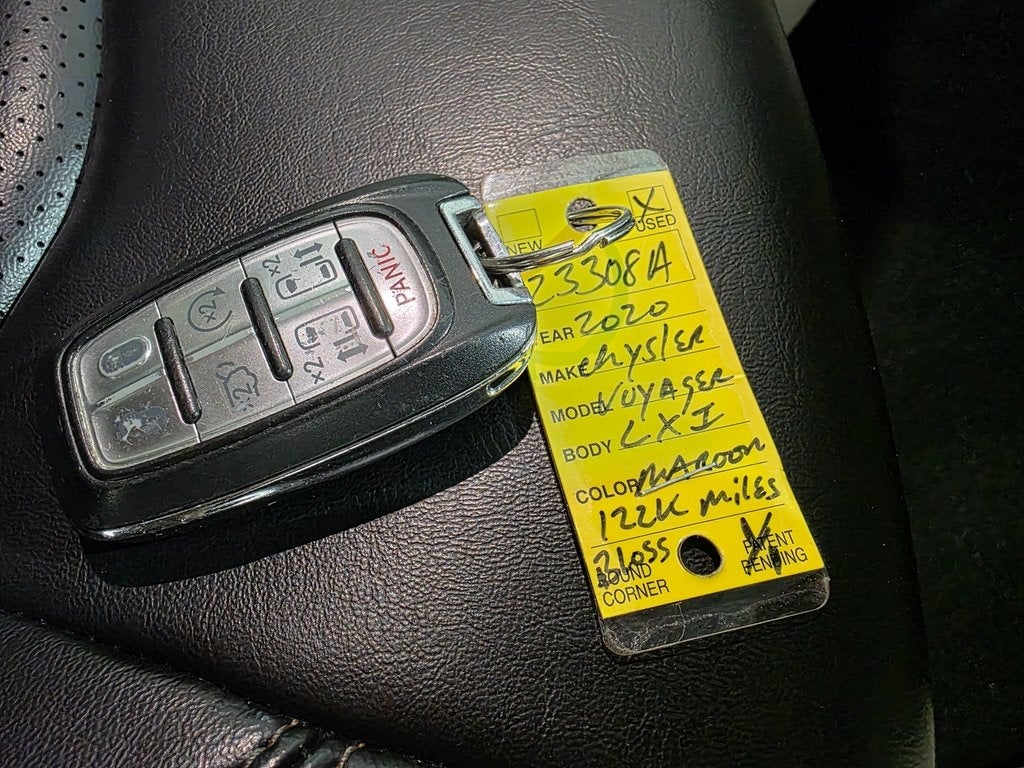 PANIC
2x
2x
X
NEW USED
233081A
EAR 2020
MAKE Chysler
MODEL VOYAGER
BODY LXI
COLOR MAROON
122K MILES
ROUND PATENT
CORNER PENDING